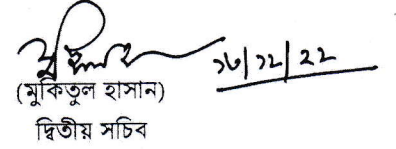 ১৩/১২/২২
(মুকিতুল হাসান)
দ্বিতীয় সচিব